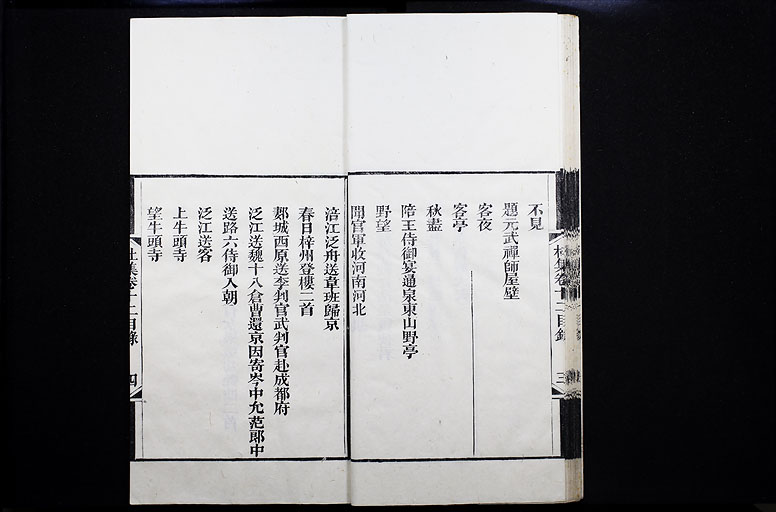 不見
題元武禪師屋壁
客夜
客亭
秋盡
陪王侍御宴通泉東山野亭
野望
聞官軍收河南河北
涪江泛舟送韋班歸京
春日梓州登樓二首
郪城西原送李判官武判官赴成都府
泛江送魏十八倉曹還京因寄岑中允范郎中
送路六侍御入朝
泛江送客
上牛頭寺
望牛頭寺
杜集卷十二目錄
四